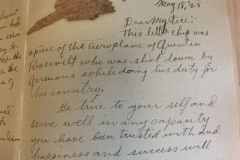 May 18, '25
Dear Myrtice:
This little chip was
a piece of the Aeroplane of Quentin
Roosevelt who was shot down by
Germans while doing his duty for
his country.
Be true to your self and
serve well in any capacity
you have been trusted with and
happiness and success will